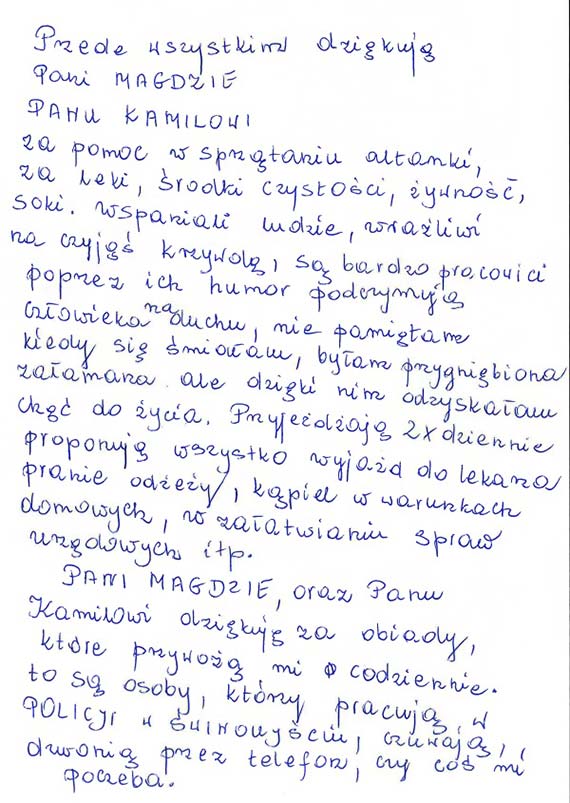 Przede wszystkim dziękują
Pani MAGDZIE
PANU KAMILOWI
za pomoc w sprzątaniu altanki,
za leki, środki czystości, żywność,
soki. Wspaniali ludzie, wrażliwi
na czyjąś krzywdę, są bardzo pracowici
poprzez ich humor podczymyją
człowieka na duchu, nie pamiętam
kiedy się śmiałam, byłam przygnębiona
załamana ale dzięki nim odzyskałam
chęć do życia. Przyjeżdżają 2x dziennie
proponują wszystko wyjazd do lekarza
pranie odzeży, kąpiel w warunkach
domowych, w załatwianiu spraw
urzędowych itp.
PANI MAGDZIE, oraz Panu
Kamilowi dziękuję za obiady,
które przywożą mi codziennie.
to są osoby, którzy pracują w
POLICJI w ŚWINOUJŚCIU, czuwają,
dzwonią przez telefon, czy coś mi
poczeba.